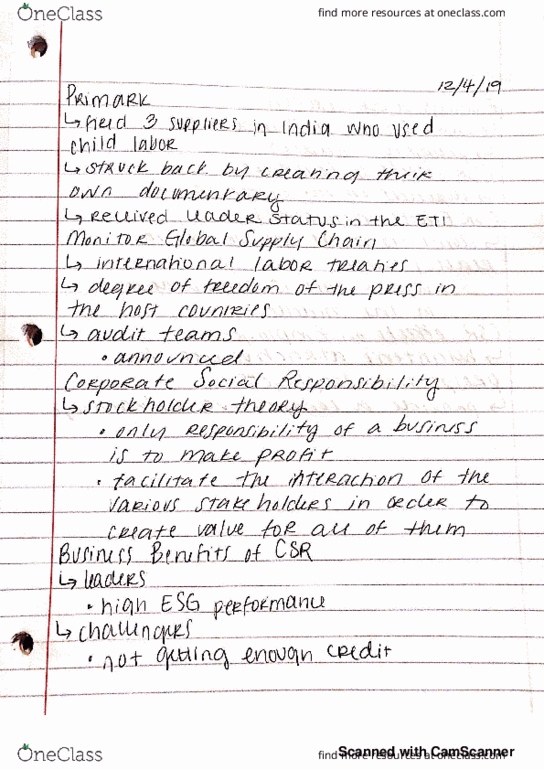 OneClass
find more resources at oneclass.com
12/4/19
Primark
↳ fired 3 suppliers in India who used
child labor
↳ struck back by creating their
own documentary
↳ received leader status in the ETI
Monitor Global Supply Chain
↳ international labor treaties
↳ degree of freedom of the press in
the host countries
↳ audit teams
• announced
Corporate Social Responsibility
↳ stockholder theory
• only responsibility of a business
is to make profit
• facilitate the interaction of the
various stakeholders in order to
create value for all of them
Business Benefits of CSR
↳ leaders
• high ESG performance
↳ challengers
• not getting enough credit
OneClass
find more resources at oneclass.com
Scanned with CamScanner